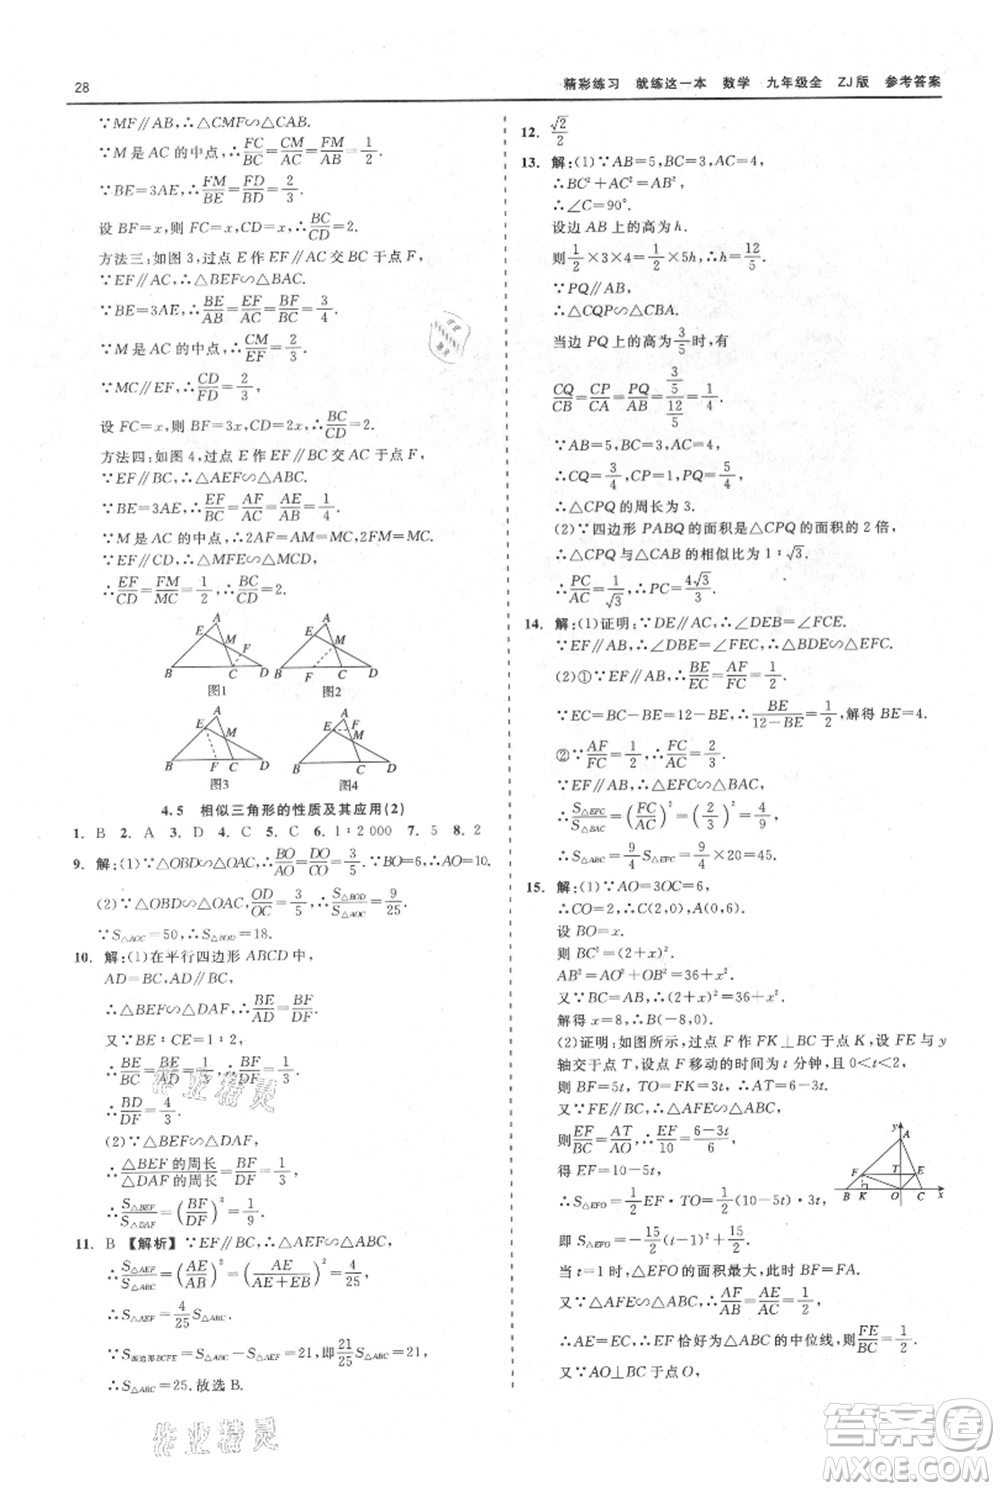 28
精彩练习 就练这一本 数学 九年级全 ZJ版 参考答案
∵MF∥AB,∴△CMF∽△CAB.
∵M是AC的中点,∴FC/BC=CM/AC=FM/AB=1/2.
∵BE=3AE,∴FM/BE=FD/BD=2/3.
设BF=x,则FC=x,CD=x,∴BC/CD=2.
方法三:如图3,过点E作EF∥AC交BC于点F,
∵EF∥AC,∴△BEF∽△BAC.
∵BE=3AE,∴BE/AB=EF/AC=BF/BC=3/4.
∵M是AC的中点,∴CM/EF=2/3.
∵MC∥EF,∴CD/FD=2/3,
设FC=x,则BF=3x,CD=2x,∴BC/CD=2.
方法四:如图4,过点E作EF∥BC交AC于点F,
∵EF∥BC,∴△AEF∽△ABC.
∵BE=3AE,∴EF/BC=AF/AC=AE/AB=1/4.
∵M是AC的中点,∴2AF=AM=MC,
∵EF∥CD,∴△MFE∽△MCD,
∴EF/CD=FM/MC=1/2,∴BC/CD=2.
A E M F B C D 图1
A E M B F C D 图2
A E M B F C D 图3
A E F M B C D 图4
4.5 相似三角形的性质及其应用(2)
1. B 2. A 3. D 4. C 5. C 6. 1∶2 000 7. 5 8. 2
9. 解:(1)∵△OBD∽△OAC,BO/AO=DO/CO=3/5.∵BO=6,∴AO=10.
(2)∵△OBD∽△OAC,OD/OC=3/5,∴S△BOD/S△AOC=9/25.
∵S△AOC=50,∴S△BOD=18.
10. 解:(1)在平行四边形ABCD中,
AD=BC,AD∥BC,
∴△BEF∽△DAF,∴BE/AD=BF/DF.
又∵BE∶CE=1∶2,
∴BE/BC=BE/AD=1/3,
∴BD/DF=4/3.
(2)∵△BEF∽△DAF,
∴△BEF的周长/△DAF的周长=BF/DF=1/3,
∴S△BEF/S△DAF=(BF/DF)²=1/9.
11. B 【解析】∵EF∥BC,∴△AEF∽△ABC,
∴S△AEF/S△ABC=(AE/AB)²=(AE/(AE+EB))²=4/25,
∴S△AEF=4/25 S△ABC.
∵S四边形BCFE=S△ABC-S△AEF=21,即21/25 S△ABC=21,
∴S△ABC=25.故选B.
12. √2/2
13. 解:(1)∵AB=5,BC=3,AC=4,
∴BC²+AC²=AB²,
∴∠C=90°.
设边AB上的高为h.
则1/2×3×4=1/2×5h,∴h=12/5.
∵PQ∥AB,
∴△CQP∽△CBA.
当边PQ上的高为3/5时,有
CQ/CB=CP/CA=PQ/AB=(3/5)/(12/5)=1/4.
∵AB=5,BC=3,AC=4,
∴CQ=3/4,CP=1,PQ=5/4,
∴△CPQ的周长为3.
(2)∵四边形PABQ的面积是△CPQ的面积的2倍,
∴△CPQ与△CAB的相似比为1∶√3.
∴PC/AC=1/√3,∴PC=4√3/3.
14. 解:(1)证明:∵DE∥AC,∴∠DEB=∠FCE.
∵EF∥AB,∴∠DBE=∠FEC,∴△BDE∽△EFC.
(2)①∵EF∥AB,∴BE/EC=AF/FC=1/2.
∵EC=BC-BE=12-BE,∴BE/(12-BE)=1/2,解得BE=4.
②∵AF/FC=1/2,∴FC/AC=2/3.∵EF∥AB,∴△EFC∽△BAC,
∴S△EFC/S△BAC=(FC/AC)²=(2/3)²=4/9,
∴S△ABC=9/4 S△EFC=9/4×20=45.
15. 解:(1)∵AO=3OC=6,
∴CO=2,∴C(2,0),A(0,6).
设BO=x.
则BC²=(2+x)²,
AB²=AO²+OB²=36+x².
又∵BC=AB,∴(2+x)²=36+x²,
解得x=8,∴B(-8,0).
(2)证明:如图所示,过点F作FK⊥BC于点K,设FE与y
轴交于点T,设点F移动的时间为t分钟,且0<t<2,
则BF=5t,TO=FK=3t,∴AT=6-3t.
又∵FE∥BC,∴△AFE∽△ABC,
则EF/BC=AT/AO,∴EF/10=(6-3t)/6,
得EF=10-5t,
∴S△EFO=1/2EF·TO=1/2(10-5t)·3t,
即S△EFO=-15/2(t-1)²+15/2.
y A F T E B K O C x
当t=1时,△EFO的面积最大,此时BF=FA.
又∵△AFE∽△ABC,∴AF/AB=AE/AC=1/2,
∴AE=EC,∴EF恰好为△ABC的中位线,则FE/BC=1/2.
又∵AO⊥BC于点O,
作业精灵
作业精灵
答案卷
MXQE.COM